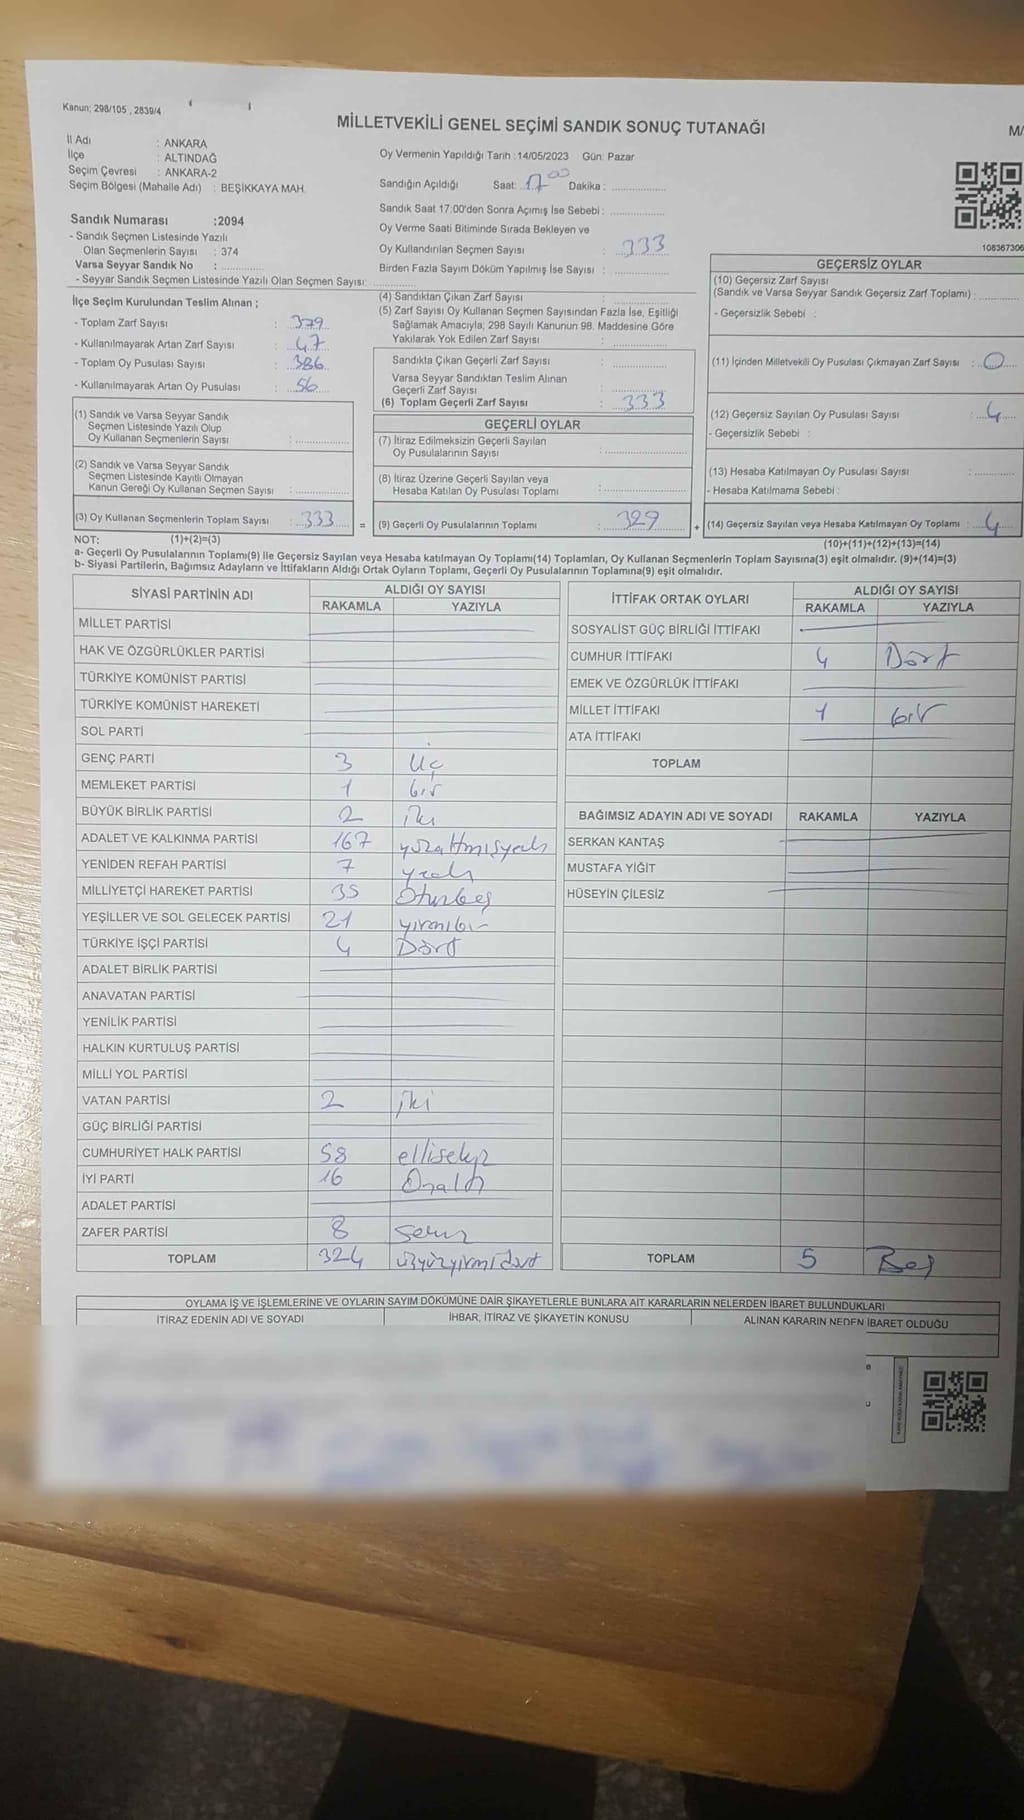 Kanun; 298/105 , 2839/4
MİLLETVEKİLİ GENEL SEÇİMİ SANDIK SONUÇ TUTANAĞI
M/
İl Adı : ANKARA
İlçe : ALTINDAĞ
Seçim Çevresi : ANKARA-2
Seçim Bölgesi (Mahalle Adı) : BEŞİKKAYA MAH.
Sandık Numarası :2094
- Sandık Seçmen Listesinde Yazılı
Olan Seçmenlerin Sayısı : 374
Varsa Seyyar Sandık No :
- Seyyar Sandık Seçmen Listesinde Yazılı Olan Seçmen Sayısı:
Oy Vermenin Yapıldığı Tarih :14/05/2023 Gün: Pazar
Sandığın Açıldığı Saat: 17 00 Dakika :
Sandık Saat 17:00'den Sonra Açımış İse Sebebi :
Oy Verme Saati Bitiminde Sırada Bekleyen ve
Oy Kullandırılan Seçmen Sayısı : 333
Birden Fazla Sayım Döküm Yapılmış İse Sayısı :
108367306
İlçe Seçim Kurulundan Teslim Alınan ;
- Toplam Zarf Sayısı : 379
- Kullanılmayarak Artan Zarf Sayısı : 47
- Toplam Oy Pusulası Sayısı : 386
- Kullanılmayarak Artan Oy Pusulası : 56
(1) Sandık ve Varsa Seyyar Sandık
Seçmen Listesinde Yazılı Olup
Oy Kullanan Seçmenlerin Sayısı :
(2) Sandık ve Varsa Seyyar Sandık
Seçmen Listesinde Kayıtlı Olmayan
Kanun Gereği Oy Kullanan Seçmen Sayısı :
(3) Oy Kullanan Seçmenlerin Toplam Sayısı : 333
(1)+(2)=(3)
(4) Sandıktan Çıkan Zarf Sayısı :
(5) Zarf Sayısı Oy Kullanan Seçmen Sayısından Fazla İse, Eşitliği
Sağlamak Amacıyla; 298 Sayılı Kanunun 98. Maddesine Göre
Yakılarak Yok Edilen Zarf Sayısı :
Sandıkta Çıkan Geçerli Zarf Sayısı :
Varsa Seyyar Sandıktan Teslim Alınan
Geçerli Zarf Sayısı :
(6) Toplam Geçerli Zarf Sayısı : 333
GEÇERLİ OYLAR
(7) İtiraz Edilmeksizin Geçerli Sayılan
Oy Pusulalarının Sayısı :
(8) İtiraz Üzerine Geçerli Sayılan veya
Hesaba Katılan Oy Pusulası Toplamı :
= (9) Geçerli Oy Pusulalarının Toplamı : 329
GEÇERSİZ OYLAR
(10) Geçersiz Zarf Sayısı
(Sandık ve Varsa Seyyar Sandık Geçersiz Zarf Toplamı) :
- Geçersizlik Sebebi :
(11) İçinden Milletvekili Oy Pusulası Çıkmayan Zarf Sayısı : 0
(12) Geçersiz Sayılan Oy Pusulası Sayısı : 4
- Geçersizlik Sebebi :
(13) Hesaba Katılmayan Oy Pusulası Sayısı :
- Hesaba Katılmama Sebebi :
+ (14) Geçersiz Sayılan veya Hesaba Katılmayan Oy Toplamı : 4
(10)+(11)+(12)+(13)=(14)
NOT:
a- Geçerli Oy Pusulalarının Toplamı(9) ile Geçersiz Sayılan veya Hesaba katılmayan Oy Toplamı(14) Toplamları, Oy Kullanan Seçmenlerin Toplam Sayısına(3) eşit olmalıdır. (9)+(14)=(3)
b- Siyasi Partilerin, Bağımsız Adayların ve İttifakların Aldığı Ortak Oyların Toplamı, Geçerli Oy Pusulalarının Toplamına(9) eşit olmalıdır.
SİYASİ PARTİNİN ADI ALDIĞI OY SAYISI
RAKAMLA YAZIYLA
MİLLET PARTİSİ
HAK VE ÖZGÜRLÜKLER PARTİSİ
TÜRKİYE KOMÜNİST PARTİSİ
TÜRKİYE KOMÜNİST HAREKETİ
SOL PARTİ
GENÇ PARTİ 3 üç
MEMLEKET PARTİSİ 1 bir
BÜYÜK BİRLİK PARTİSİ 2 iki
ADALET VE KALKINMA PARTİSİ 167 yüzaltmışyedi
YENİDEN REFAH PARTİSİ 7 yedi
MİLLİYETÇİ HAREKET PARTİSİ 35 Otuzbeş
YEŞİLLER VE SOL GELECEK PARTİSİ 21 yirmibir
TÜRKİYE İŞÇİ PARTİSİ 4 Dört
ADALET BİRLİK PARTİSİ
ANAVATAN PARTİSİ
YENİLİK PARTİSİ
HALKIN KURTULUŞ PARTİSİ
MİLLİ YOL PARTİSİ
VATAN PARTİSİ 2 iki
GÜÇ BİRLİĞİ PARTİSİ
CUMHURİYET HALK PARTİSİ 58 ellisekiz
İYİ PARTİ 16 Onaltı
ADALET PARTİSİ
ZAFER PARTİSİ 8 sekiz
TOPLAM 324 üçyüzyirmidört
İTTİFAK ORTAK OYLARI ALDIĞI OY SAYISI
RAKAMLA YAZIYLA
SOSYALİST GÜÇ BİRLİĞİ İTTİFAKI
CUMHUR İTTİFAKI 4 Dört
EMEK VE ÖZGÜRLÜK İTTİFAKI
MİLLET İTTİFAKI 1 bir
ATA İTTİFAKI
TOPLAM
BAĞIMSIZ ADAYIN ADI VE SOYADI RAKAMLA YAZIYLA
SERKAN KANTAŞ
MUSTAFA YİĞİT
HÜSEYİN ÇİLESİZ
TOPLAM 5 Beş
OYLAMA İŞ VE İŞLEMLERİNE VE OYLARIN SAYIM DÖKÜMÜNE DAİR ŞİKAYETLERLE BUNLARA AİT KARARLARIN NELERDEN İBARET BULUNDUKLARI
İTİRAZ EDENİN ADI VE SOYADI İHBAR, İTİRAZ VE ŞİKAYETİN KONUSU ALINAN KARARIN NEDEN İBARET OLDUĞU